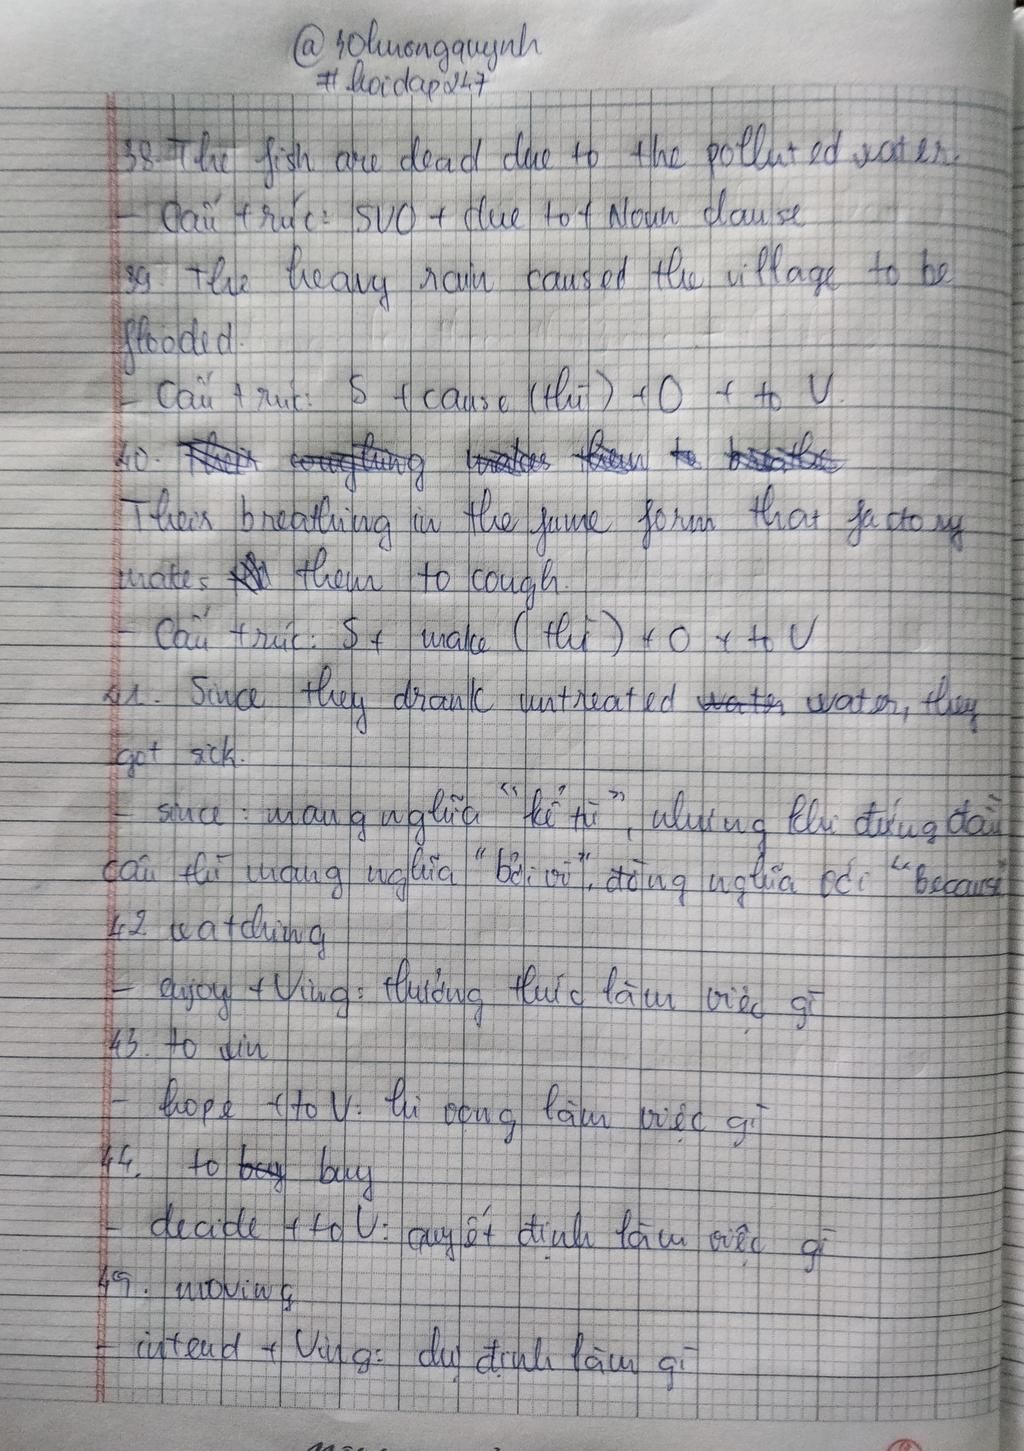 @ 30huongquynh
# hoidap247
38. The fish are dead due to the polluted water.
- Cấu trúc: SVO + due to + Noun clause
39. The heavy rain caused the village to be
flooded.
- Cấu trúc: S + cause (thì) + O + to V.
40. Their coughing makes them to breathe
Their breathing in the fume form that factory
makes them to cough.
- Cấu trúc: S + make (thì) + O + to V
41. Since they drank untreated water water, they
got sick.
- since: mang nghĩa "kể từ", nhưng khi đứng đầu
câu thì mang nghĩa "bởi vì", đồng nghĩa với "because
42 watching
- enjoy + Ving: thưởng thức làm việc gì
43. to win
- hope + to V: hi vọng làm việc gì
44. to buy buy
- decide + to V: quyết định làm việc gì
49. moving
- intend + Ving: dự định làm gì